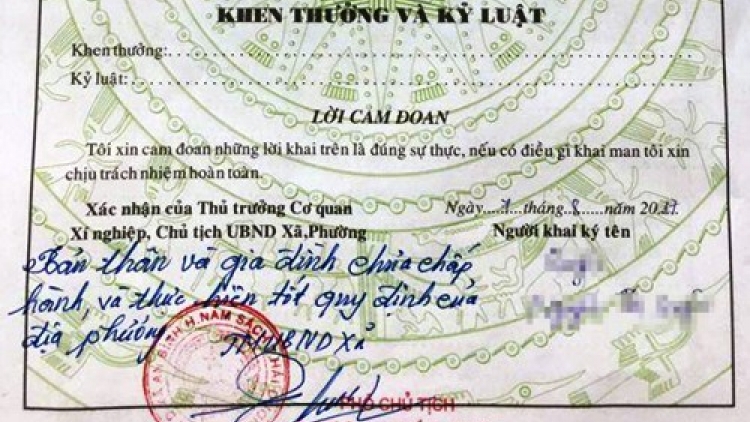 KHEN THƯỞNG VÀ KỶ LUẬT
Khen thưởng:
Kỷ luật:
LỜI CAM ĐOAN
Tôi xin cam đoan những lời khai trên là đúng sự thực, nếu có điều gì khai man tôi xin
chịu trách nhiệm hoàn toàn.
Xác nhận của Thủ trưởng Cơ quan
Xí nghiệp, Chủ tịch UBND Xã,Phường
Ngày....7....tháng..8......năm 2017
Người khai ký tên
Bản thân và gia đình chưa chấp
hành, và thực hiện tốt quy định của
địa phương
TM UBND Xã
H.NAM SÁCH
PHÓ CHỦ TỊCH